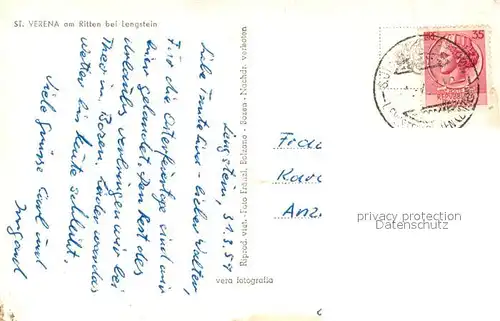 ST. VERENA am Ritten bei Lengstein
Lengstein, 31.3.59
Liebe Tante Lina - lieber Walter,
Für die Osterfeiertage sind wir
hier gelandet. Den Rest des
Urlaubes verbringen wir bei
Theo in Bozen. Leider war das
Wetter bis heute schlecht.
Viele Grüsse und
Irmgard
Riprod. viet. - Foto Fränzl, Bolzano - Bozen - Nachdr. verboten
vera fotografia
35
Frau
Kar
Anz.
privacy protection
watermarks